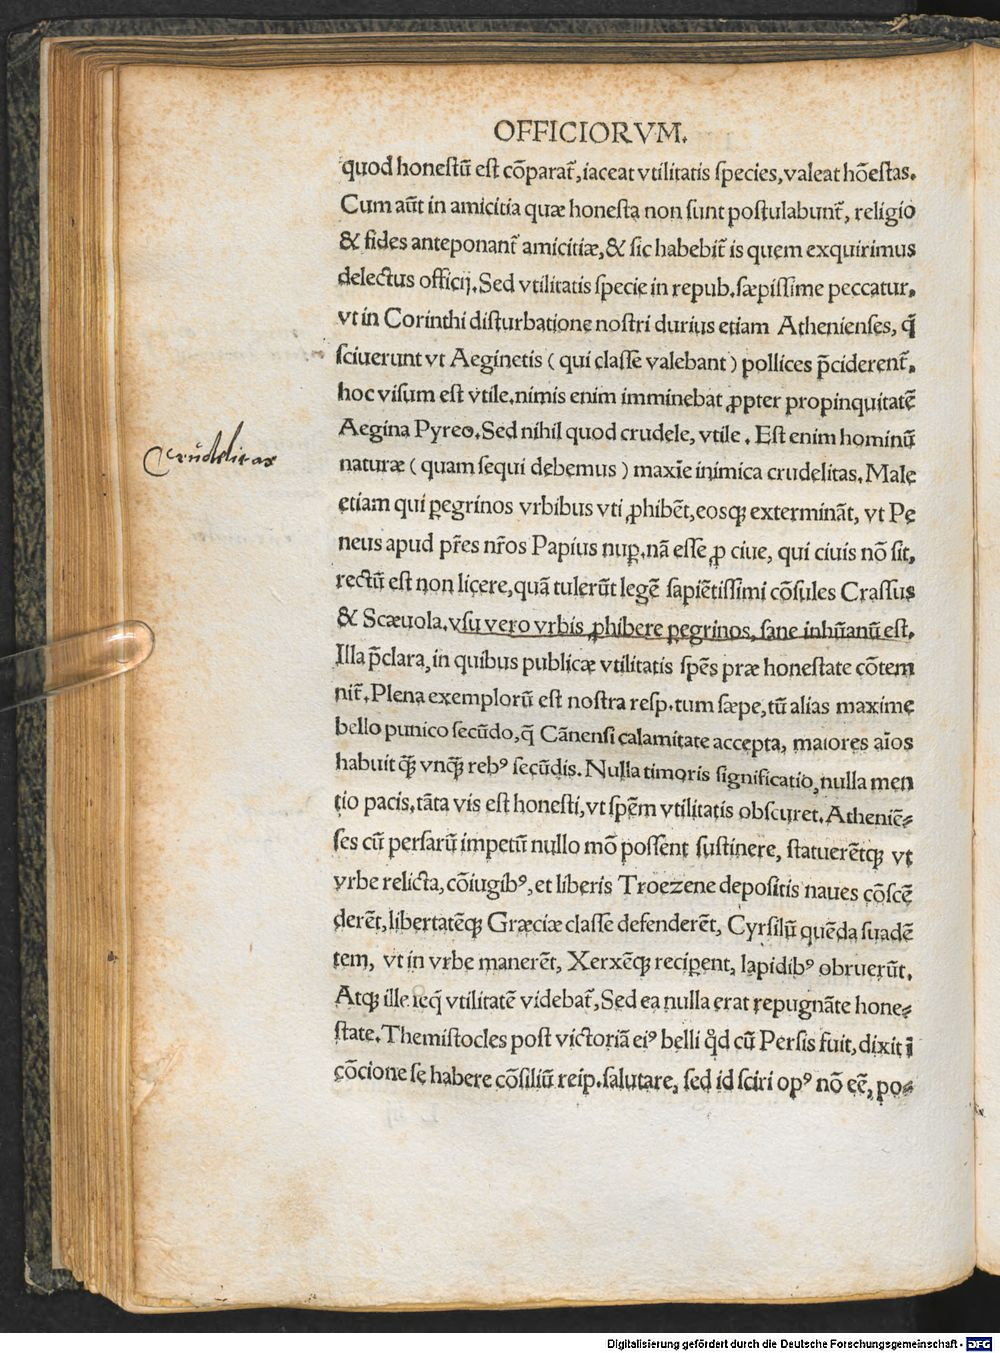 OFFICIORVM.
quod honestū est cōparat̃, iaceat vtilitatis species, valeat hōestas.
Cum aũt in amicitia quæ honesta non sunt postulabunt̃, religio
& fides anteponant̃ amicitiæ, & sic habebit̃ is quem exquirimus
delectus officij. Sed vtilitatis specie in repub. sæpissime peccatur,
vt in Corinthi disturbatione nostri durius etiam Athenienses, q̃
sciuerunt vt Aeginetis ( qui classe valebant ) pollices p̃ciderent̃,
hoc visum est vtile. nimis enim imminebat ꝓpter propinquitatē
Aegina Pyreo. Sed nihil quod crudele, vtile. Est enim hominū
naturæ ( quam sequi debemus ) maxīe inimica crudelitas. Male
etiam qui ꝑegrinos vrbibus vti ꝓhibēt, eosq; exterminãt, vt Pe
neus apud pr̃es nr̃os Papius nuꝑ. nã esse ꝓ ciue, qui ciuis nō sit,
rectū est non licere, quã tulerūt legē sapiētissimi cōsules Crassus
& Scæuola. vsu vero vrbis ꝓhibere ꝑegrinos, sane inhūanū est.
Illa p̃clara, in quibus publicæ vtilitatis spēs præ honestate cōtem
nit̃. Plena exemplorū est nostra resp. tum sæpe, tū alias maxime
bello punico secūdo, q̃ Cãnensi calamitate accepta, maiores aīos
habuit q̃ꝫ vnq̃ꝫ rebꝰ secūdis. Nulla timoris significatio, nulla men
tio pacis, tãta vis est honesti, vt spēm vtilitatis obscuret. Atheniē-
ses cū persarū impetū nullo mō possent sustinere, statuerētq; vt
vrbe relicta, cōiugibꝰ, et liberis Troezene depositis naues cōscē
derēt, libertatēq; Græciæ classe defenderēt, Cyrsilū quēda suadē
tem, vt in vrbe manerēt, Xerxēq; reciꝑent, lapidibꝰ obruerūt.
Atq; ille seq̃ vtilitatē videbat̃, Sed ea nulla erat repugnãte hone-
state. Themistocles post victoriã eiꝰ belli qd̃ cū Persis fuit, dixit ī
cōcione se habere cōsiliū reip. salutare, sed id sciri opꝰ nō eē, po-
Crudelitas
Digitalisierung gefördert durch die Deutsche Forschungsgemeinschaft - DFG